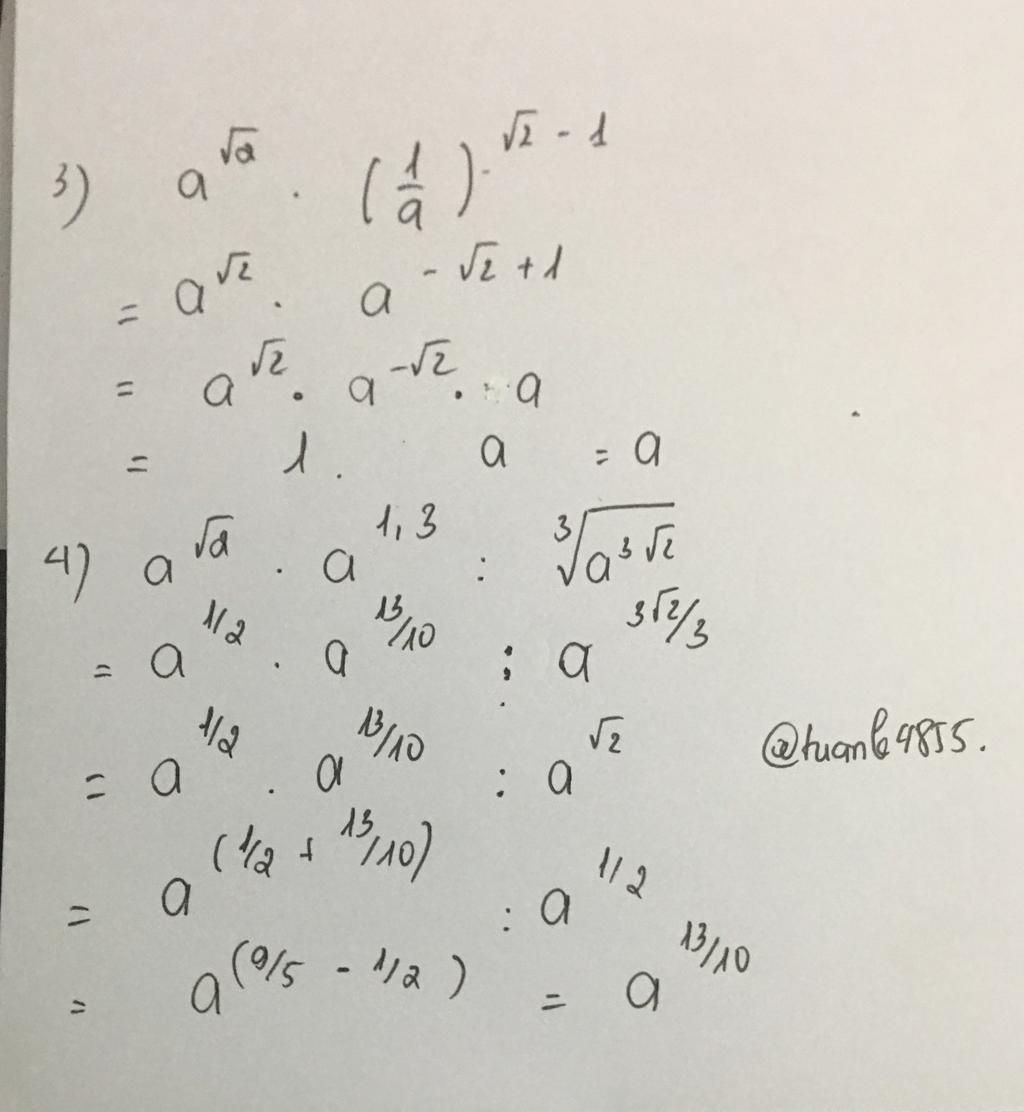 3) a^√2 . (1/a)^√2 - 1
= a^√2 . a^-√2 + 1
= a^√2 . a^-√2 . a
= 1 . a = a
4) a^√2 . a^1,3 : ³√a^3√2
= a^1/2 . a^13/10 : a^3√2/3
= a^1/2 . a^13/10 : a^√2
@tuanb4855.
= a^(1/2 + 13/10) : a^1/2
= a^(9/5 - 1/2) = a^13/10